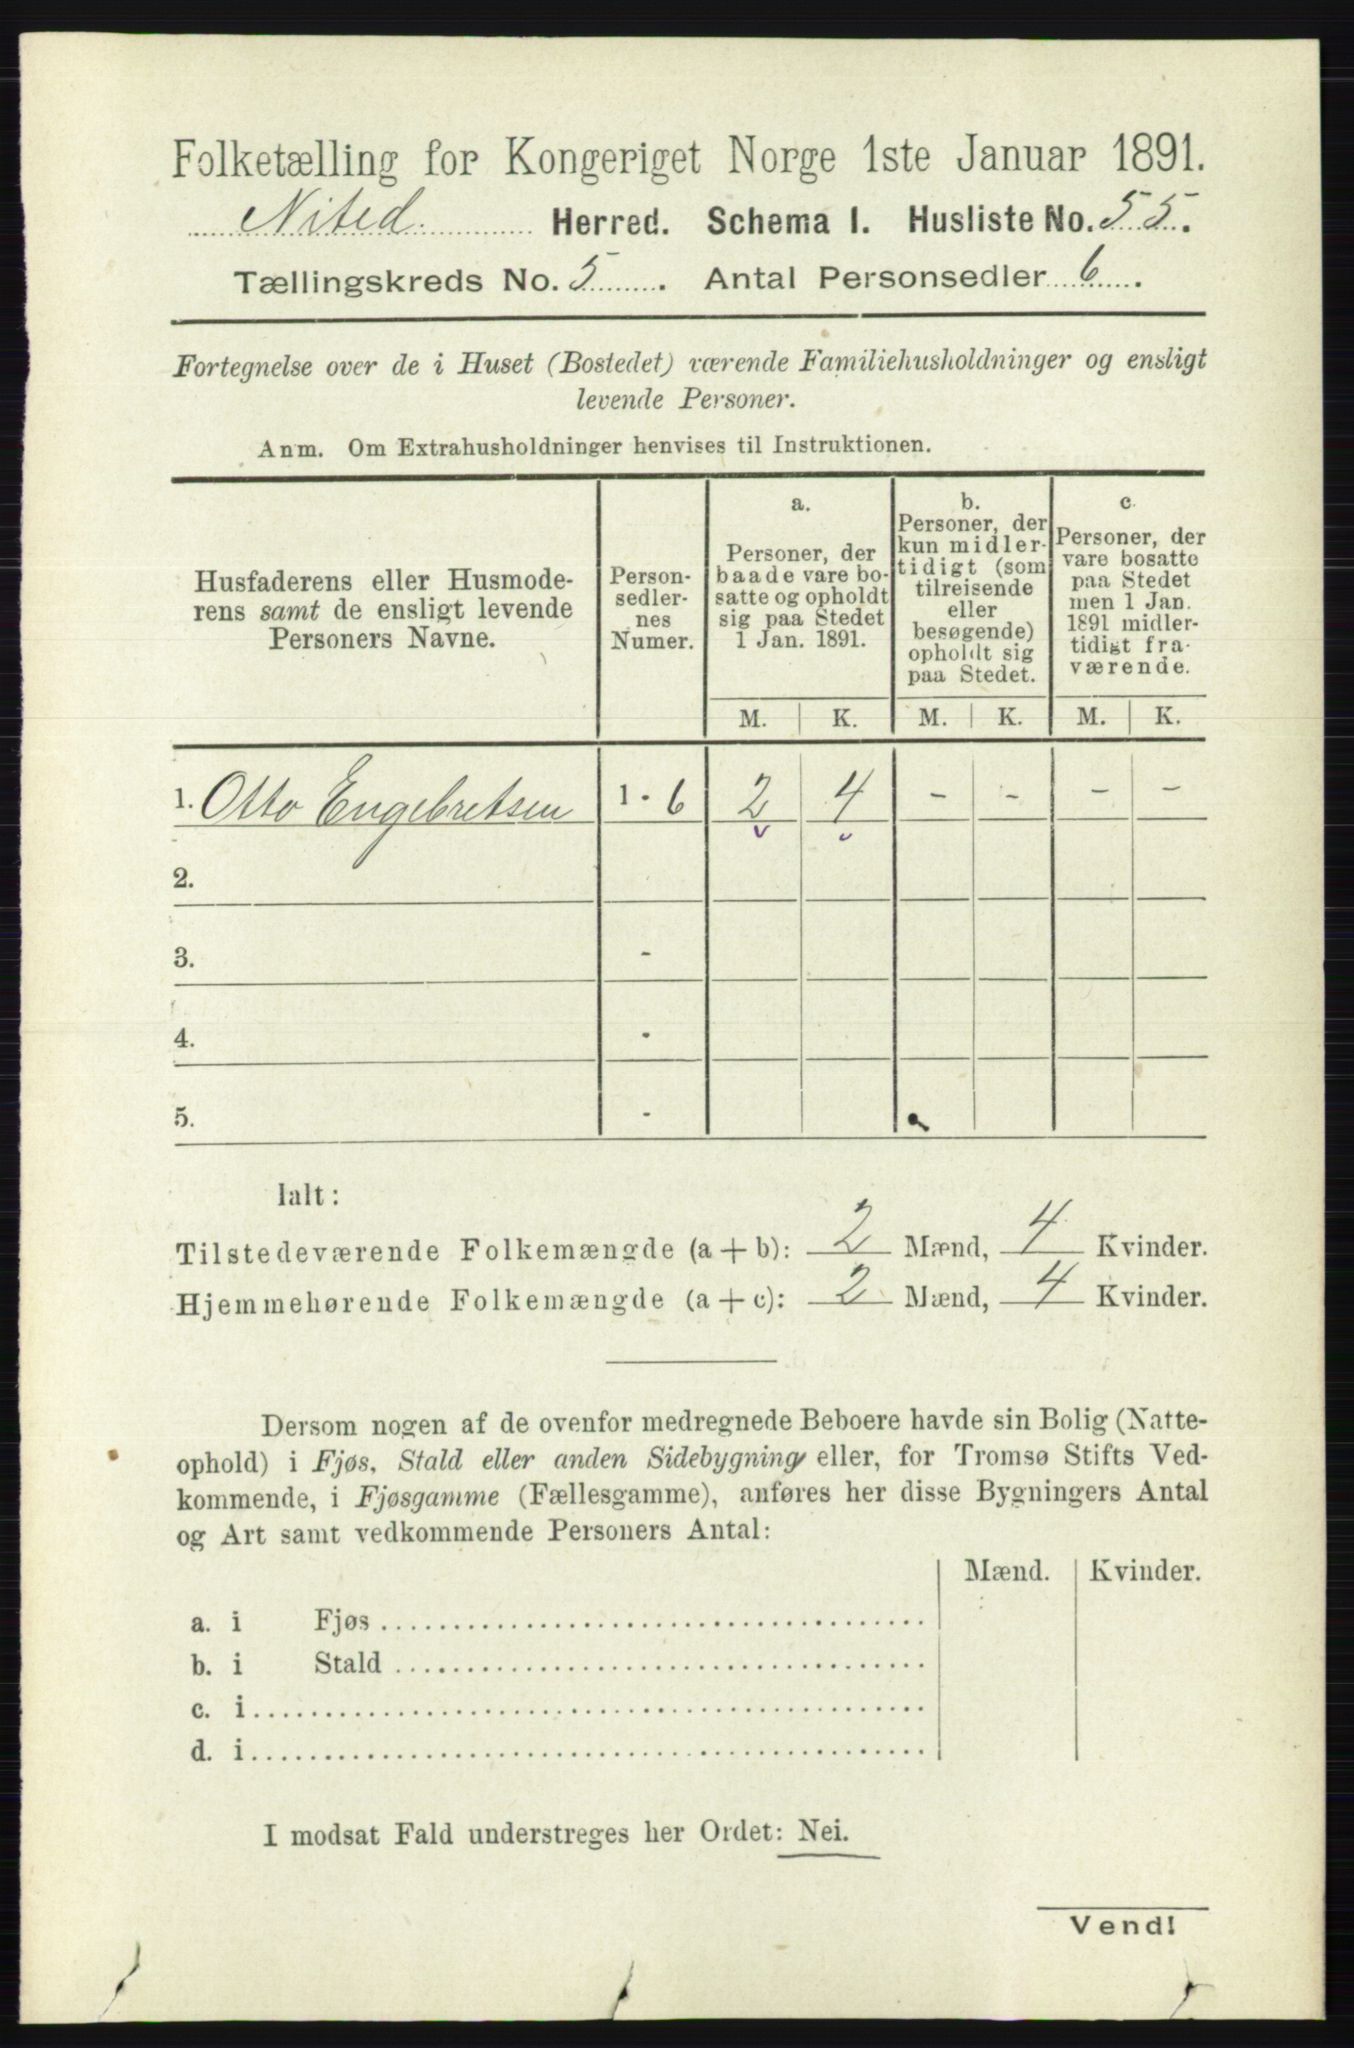 Folketælling for Kongeriget Norge 1ste Januar 1891.
Nited. Herred. Schema I. Husliste No. 55.
Tællingskreds No. 5. Antal Personsedler 6.
Fortegnelse over de i Huset (Bostedet) værende Familiehusholdninger og ensligt
levende Personer.
Anm. Om Extrahusholdninger henvises til Instruktionen.
Husfaderens eller Husmode-
rens samt de ensligt levende
Personers Navne.
Person-
sedler-
nes
Numer.
a.
Personer, der
baade vare bo-
satte og opholdt
sig paa Stedet
1 Jan. 1891.
b.
Personer, der
kun midler-
tidigt (som
tilreisende
eller
besøgende)
opholdt sig
paa Stedet.
c.
Personer, der
vare bosatte
paa Stedet
men 1 Jan.
1891 midler-
tidigt fra-
værende.
M. K. M. K. M. K.
1. Otto Engebretsen 1 - 6 2 4 - - - -
2.
3. -
4. -
5. -
Ialt:
Tilstedeværende Folkemængde (a + b): 2 Mænd, 4 Kvinder.
Hjemmehørende Folkemængde (a + c): 2 Mænd, 4 Kvinder.
Dersom nogen af de ovenfor medregnede Beboere havde sin Bolig (Natte-
ophold) i Fjøs, Stald eller anden Sidebygning eller, for Tromsø Stifts Ved-
kommende, i Fjøsgamme (Fællesgamme), anføres her disse Bygningers Antal
og Art samt vedkommende Personers Antal:
Mænd. Kvinder.
a. i Fjøs
b. i Stald
c. i
d. i
I modsat Fald understreges her Ordet: Nei.
Vend!